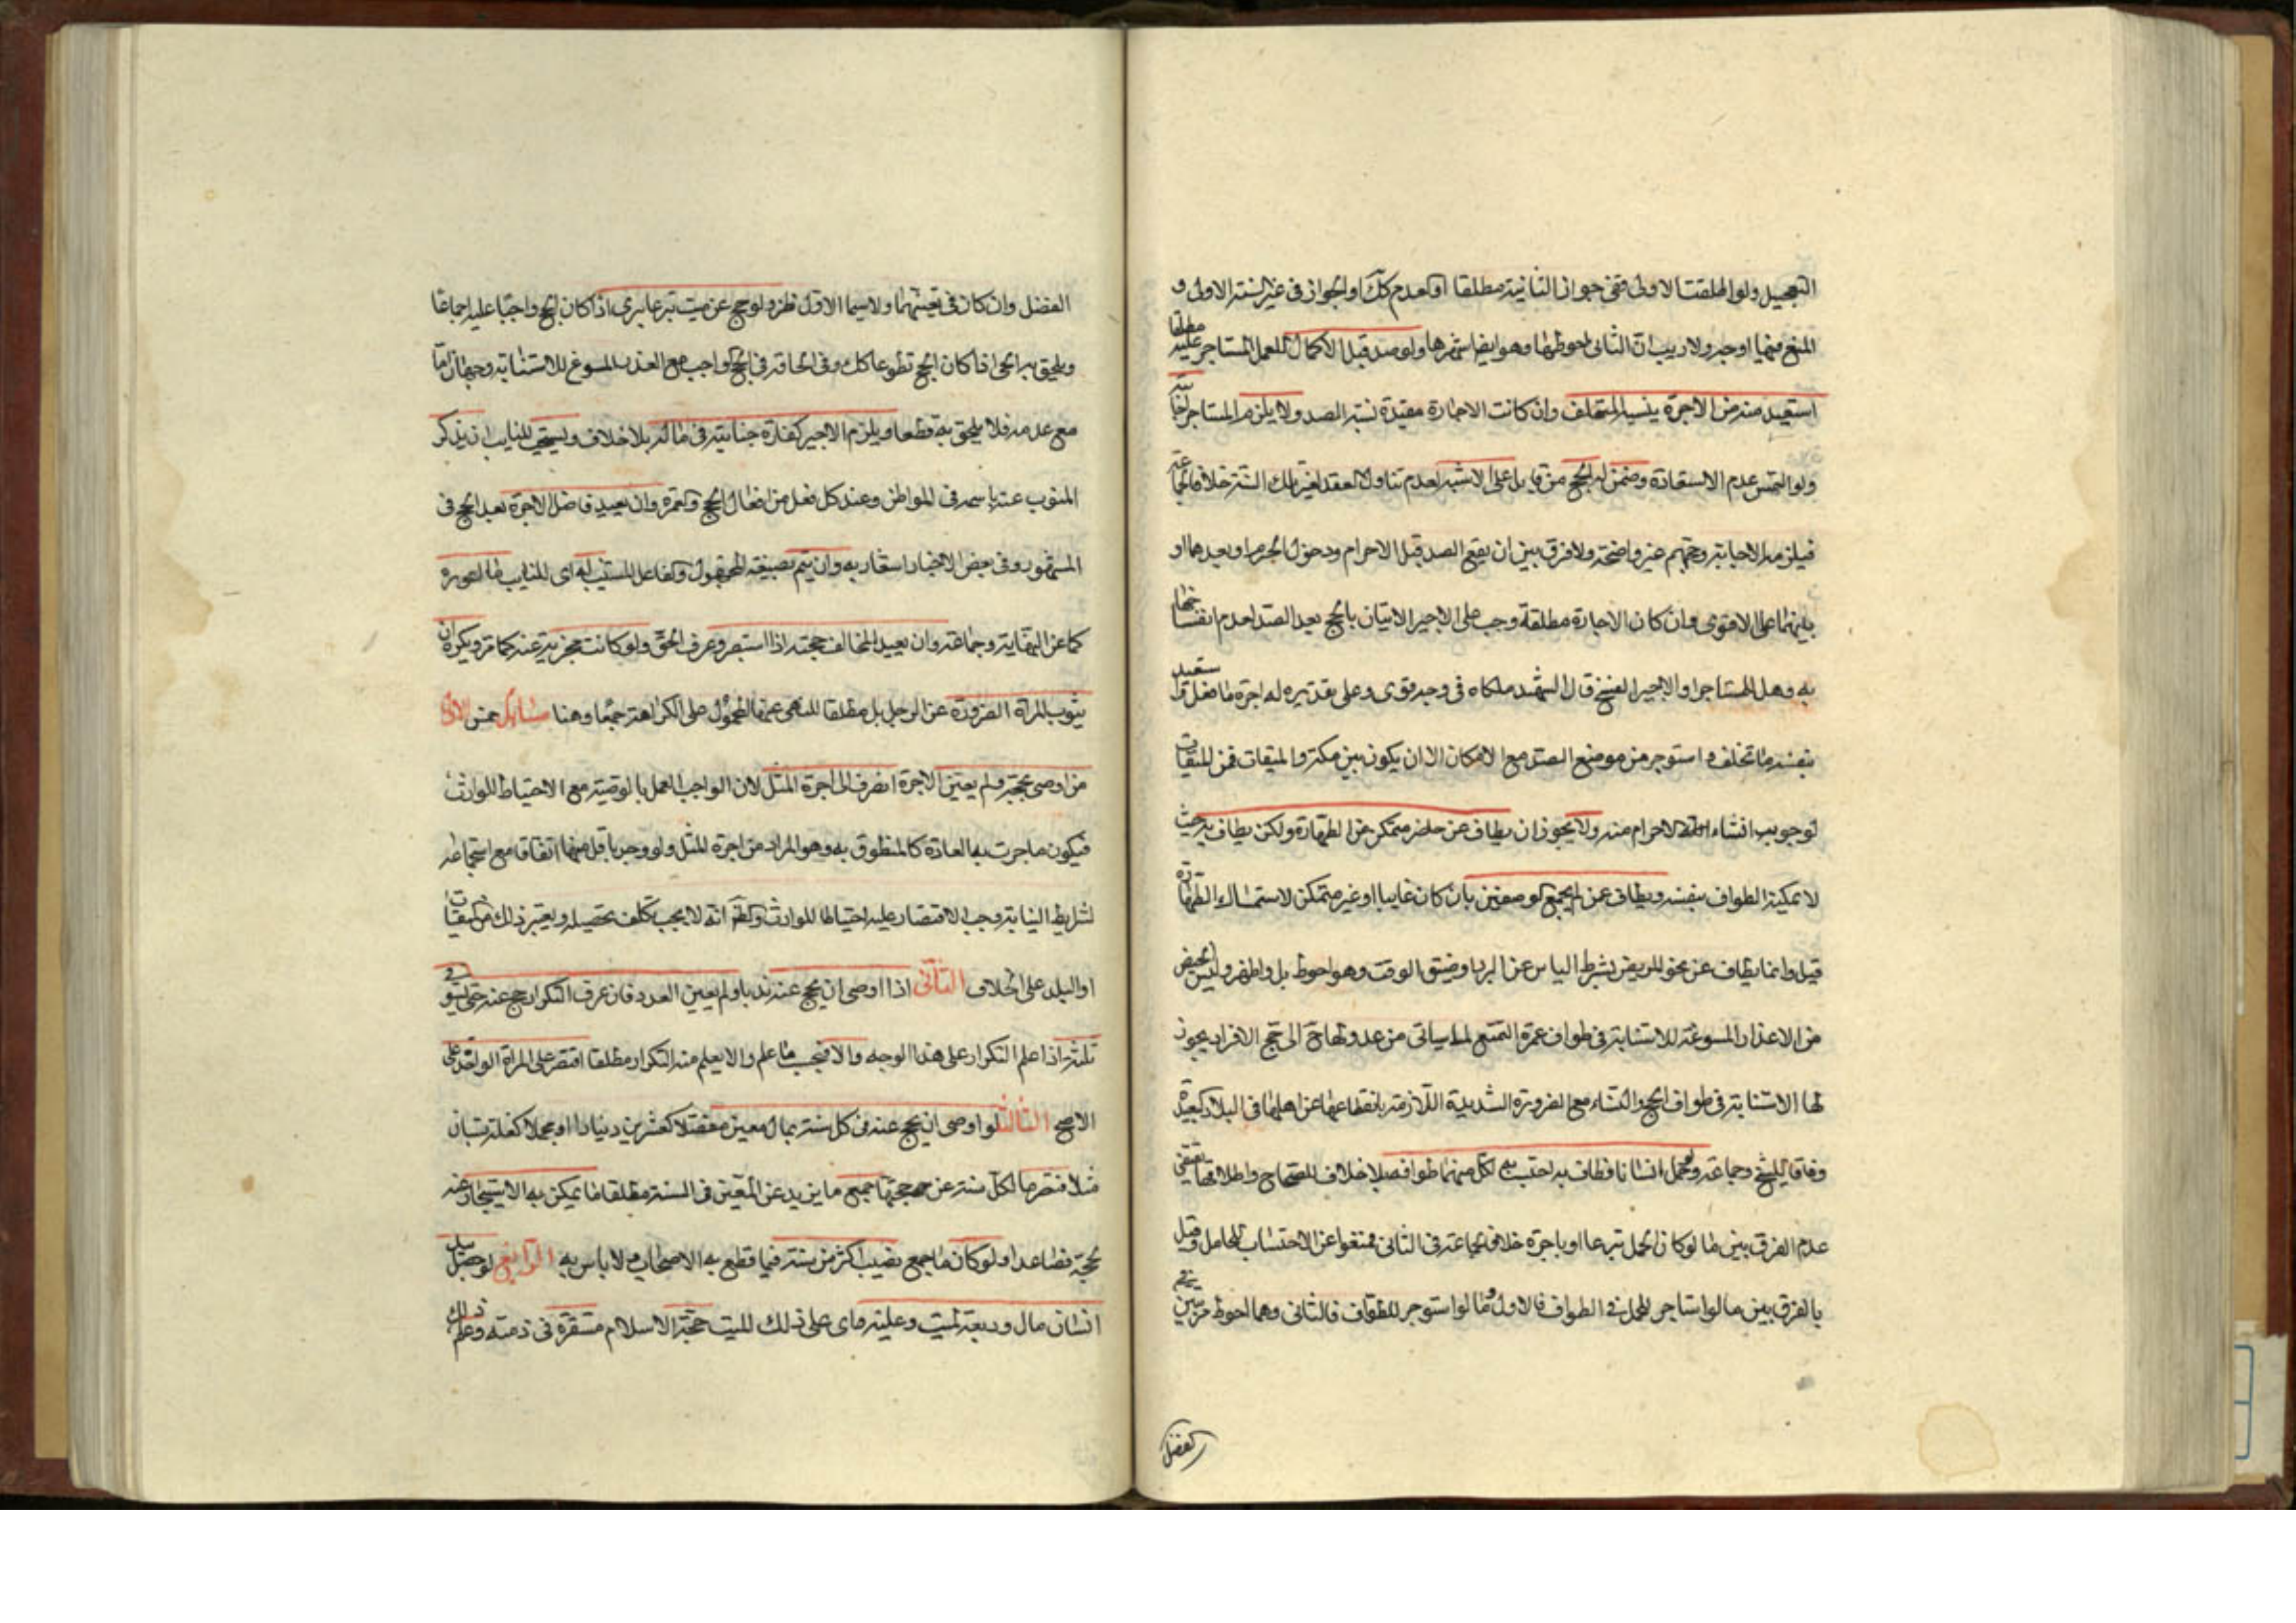 التعجيل ولو اطلقت الاولى ففي جواز الثانية مطلقا او العدم كك او الجواز في غير السنة الاولى و
المنع فيها اوجه ولا ريب ان الثاني احوطها وهو ايضا اشهرها ولو صد قبل الاكمال للعمل المستاجر عليه مطلقا
استعيد منه من الاجرة بنسبة المتخلف وان كانت الاجارة مقيدة بسنة الصد ولا يلزم المستاجر اجابته
ولو التمس عدم الاستعادة وضمن له الحج من قابل على الاشبه لعدم تناول العقد لغير تلك السنة خلافا لجماعة
فيلزمه الاجابة وحجتهم غير واضحة ولا فرق بين ان يقع الصد قبل الاحرام ودخول الحرم او بعدهما او
بينهما على الاقوى وان كان الاجارة مطلقة وجب على الاجير الاتيان بالحج بعد الصد لعدم انفساخها
به وهل للمستاجر او الاجير الفسخ قال الشهيد ملكاه في وجه قوي وعلى تقديره له اجرة ما فعل و استعيد
بنسبة ما تخلف و استوجر من موضع الصد مع الامكان الا ان يكون بين مكة والميقات فمن الميقات
لوجوب انشاء الاحرام منه ولا يجوز ان يطاف عن حاضر متمكن من الطهارة ولكن يطاف به حيث
لا يمكنه الطواف بنفسه ويطاف عن لم يجمع الوصفين بان كان غايبا او غير متمكن لاستمساك الطهارة
قيل وانما يطاف عن نحو المريض بشرط الياس عن البرء او ضيق الوقت وهو احوط بل واظهر وليس الحيض
من الاعذار المسوغة للاستنابة في طواف عمرة التمتع لما سياتي من عدولها الى حج الافراد يجوز
لها الاستنابة في طواف الحج والنساء مع الضرورة الشديدة اللازمة بانقطاعها عن اهلها في البلاد البعيدة
وفاقا للشيخ وجماعة ولو حمل انسانا فطاف به احتسب لكل منهما طواف بلا خلاف للصحاح واطلاقها يقتضي
عدم الفرق بين ما لو كان الحمل تبرعا او باجرة خلافا لجماعة في الثاني فمنعوا عن الاحتساب للحامل وقيل
بالفرق بين ما لو استاجر للحمل في الطواف فالاول وما لو استوجر للطواف فالثاني وهما احوط من بين
كفضل
الفضل وان كان في تعيينهما ولا سيما الاول نظر ولو حج عن ميت تبرعا برئ اذا كان الحج واجبا عليه اجماعا
ويلحق به الحي اذا كان الحج تطوعا كك وفي الحاقه في الحج الواجب مع العذر المسوغ للاستنابة وجهان اما
مع عدمه فلا يلحق به قطعا ويلزم الاجير كفارة جنايته في ماله بلا خلاف ويستحب للنايب ان يذكر
المنوب عنه باسمه في المواطن وعند كل فعل من افعال الحج والعمرة وان يعيد فاضل الاجرة بعد الحج في
المشهور وفي بعض الاخبار اشعار به وان يتم
كما عن النهاية وجماعة وان يعيد المخالف حجته اذا استبصر وعرف الحق ولو كانت مجزية عنه كما مر ويكره ان
ينوب المراة الصرورة عن الرجل بل مطلقا للنهي عنها المحمول على الكراهة جمعا وهنا مسائل خمس الاولى
من اوصى بحجة ولم يعين الاجرة انصرف الى اجرة المثل لان الواجب العمل بالوصية مع الاحتياط للوارث
فيكون ما جرت به العادة كالمنطوق به وهو المراد من اجرة المثل ولو وجد باقل منها اتفاقا مع استجماعه
لشرايط النيابة وجب الاقتصار عليه احتياطا للوارث والظ انه لا يجب تكلف تحصيله ويعتبر ذلك من الميقات
او البلد على الخلاف الثاني اذا اوصى ان يحج عنه ندبا ولم يعين العدد فان عرف التكرار حج عنه حتى يستوفى
ثلثه اذا علم التكرار على هذا الوجه والا فبحسب ما علم والا يعلم منه التكرار مطلقا اقتصر على المراة الواحدة على
الاصح الثالث لو اوصى ان يحج عنه في كل سنة بمال معين مفصلا كعشرين دينارا او مجملا كغلة بستان
مثلا فقصر مال كل سنة عن حجتها جمع ما يزيد عن المعين في السنة مطلقا ما يمكن به الاستيجار عنه
لحجة فصاعدا ولو كان ما جمع نصيب اكثر من سنة فيما قطع به الاصحاب ولا باس به الرابع لو حصل بيد
انسان مال وديعة لميت وعليه اي على ذلك الميت حجة الاسلام مستقرة في ذمته وعلم ذلك